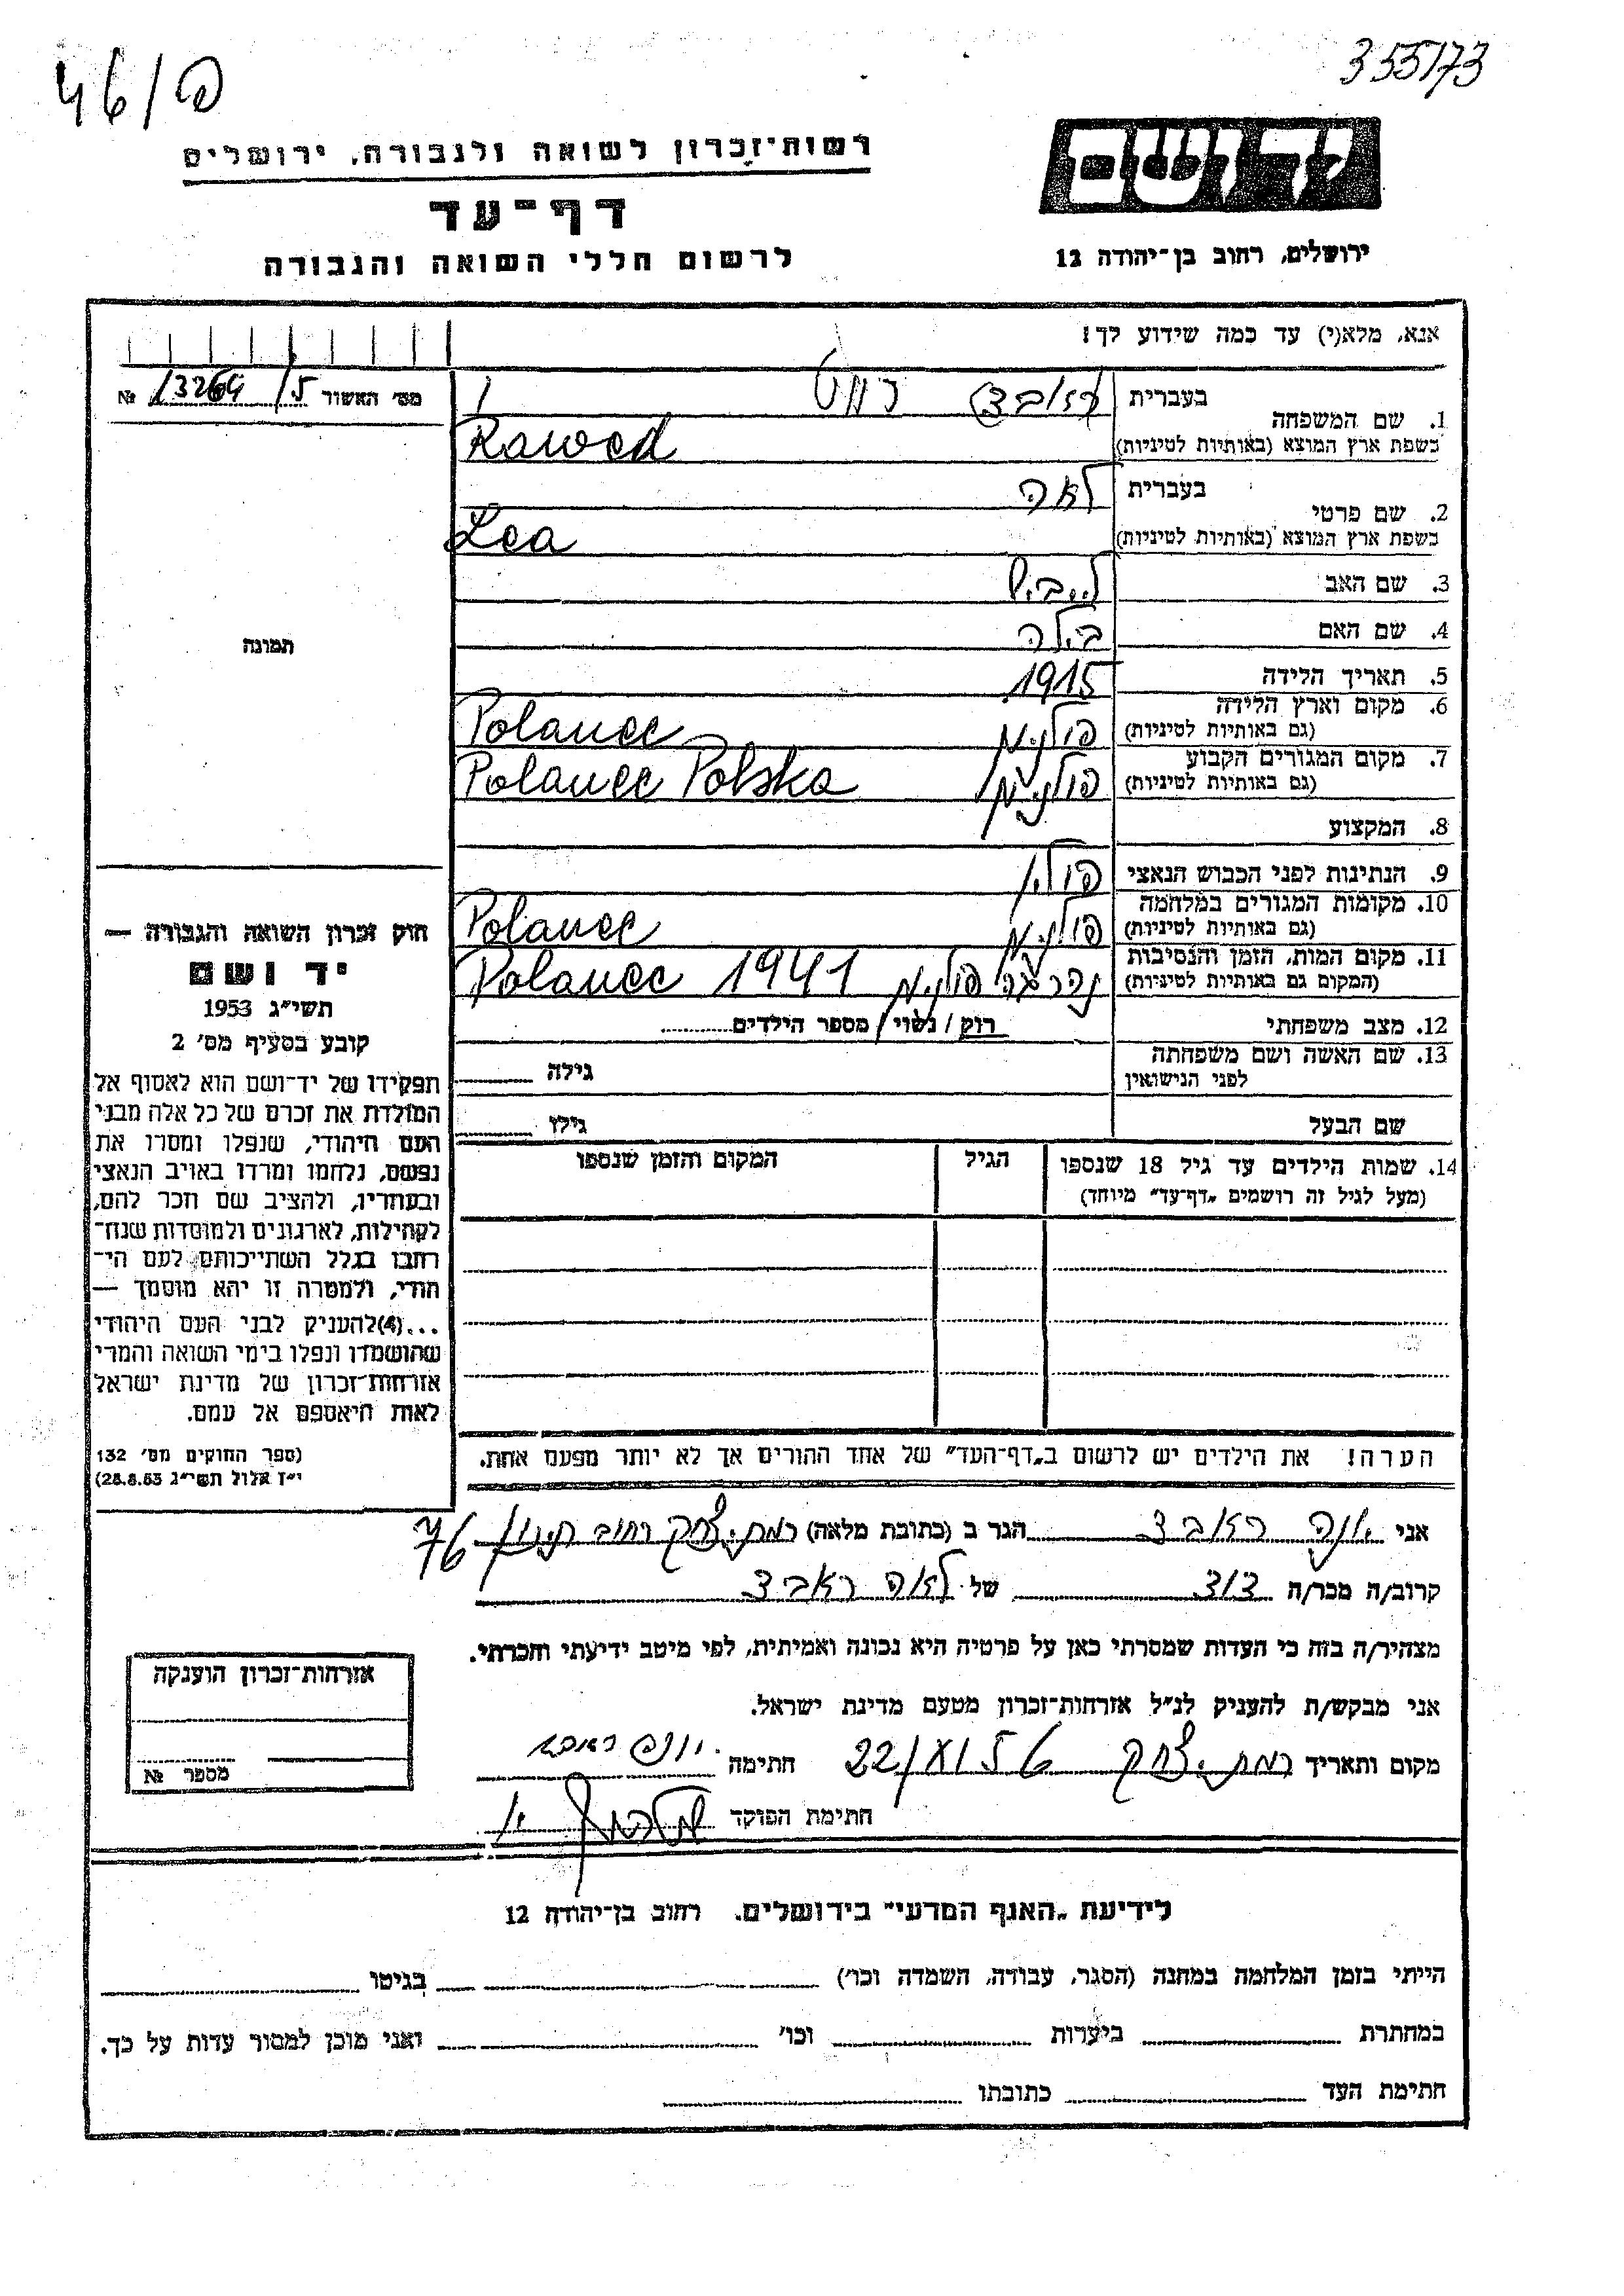 46/פ
355/73
יד ושם
רשות־זכרון לשואה ולגבורה, ירושלים
דף־עד
לרשום חללי השואה והגבורה
ירושלים, רחוב בן־יהודה 12
אנא, מלא(י) עד כמה שידוע לך!
מס׳ האשור 13264/5 №
1. שם המשפחה
בעברית ראבצ
בשפת ארץ המוצא (באותיות לטיניות) Rawed
2. שם פרטי
בעברית לאה
בשפת ארץ המוצא (באותיות לטיניות) Lea
3. שם האב לייביש
4. שם האם בילה
5. תאריך הלידה 1915
6. מקום וארץ הלידה
(גם באותיות לטיניות) Polanec
7. מקום המגורים הקבוע
(גם באותיות לטיניות) Polanec Polska
8. המקצוע
9. הנתינות לפני הכבוש הנאצי פולין
10. מקומות המגורים במלחמה
(גם באותיות לטיניות) Polanec
11. מקום המות, הזמן והנסיבות
(המקום גם באותיות לטיניות) Polanec 1941
12. מצב משפחתי רוק / נשוי / מספר הילדים
13. שם האשה ושם משפחתה
לפני הנישואין גילה
שם הבעל גילו
14. שמות הילדים עד גיל 18 שנספו הגיל המקום והזמן שנספו
(מעל לגיל זה רושמים „דף־עד״ מיוחד)
הערה! את הילדים יש לרשום ב„דף־העד״ של אחד ההורים אך לא יותר מפעם אחת.
תמונה
חוק זכרון השואה והגבורה —
יד ושם
תשי״ג 1953
קובע בסעיף מס׳ 2
תפקידו של יד־ושם הוא לאסוף אל
המולדת את זכרם של כל אלה מבני
העם היהודי, שנפלו ומסרו את
נפשם, נלחמו ומרדו באויב הנאצי
ובעוזריו, ולהציב שם וזכר להם,
לקהילות, לארגונים ולמוסדות שנח־
רחבו בגלל השתייכותם לעם הי־
הודי, ולמטרה זו יהא מוסמך —
...(4)להעניק לבני העם היהודי
שהושמדו ונפלו בימי השואה והמרי
אזרחות־זכרון של מדינת ישראל
לאות היאספם אל עמם.
(ספר החוקים מס׳ 132
י״ז אלול תשי״ג 28.8.53)
אני יונה ראבצ הגר ב (כתובת מלאה) רמת יצחק רחוב 76
קרוב/ה מכר/ה של לאה ראבצ
מצהיר/ה בזה כי העדות שמסרתי כאן על פרטיה היא נכונה ואמיתית, לפי מיטב ידיעתי והכרתי.
אני מבקש/ת להעניק לנ״ל אזרחות־זכרון מטעם מדינת ישראל.
מקום ותאריך רמת יצחק 22/XI 56 חתימה
חתימת הפוקד
אזרחות־זכרון הוענקה
מספר №
לידיעת „האגף המדעי״ בירושלים. רחוב בן־יהודה 12
הייתי בזמן המלחמה במחנה (הסגר, עבודה, השמדה וכו׳) בגיטו
במחתרת ביערות וכו׳ ואני מוכן למסור עדות על כך.
חתימת העד כתובתו